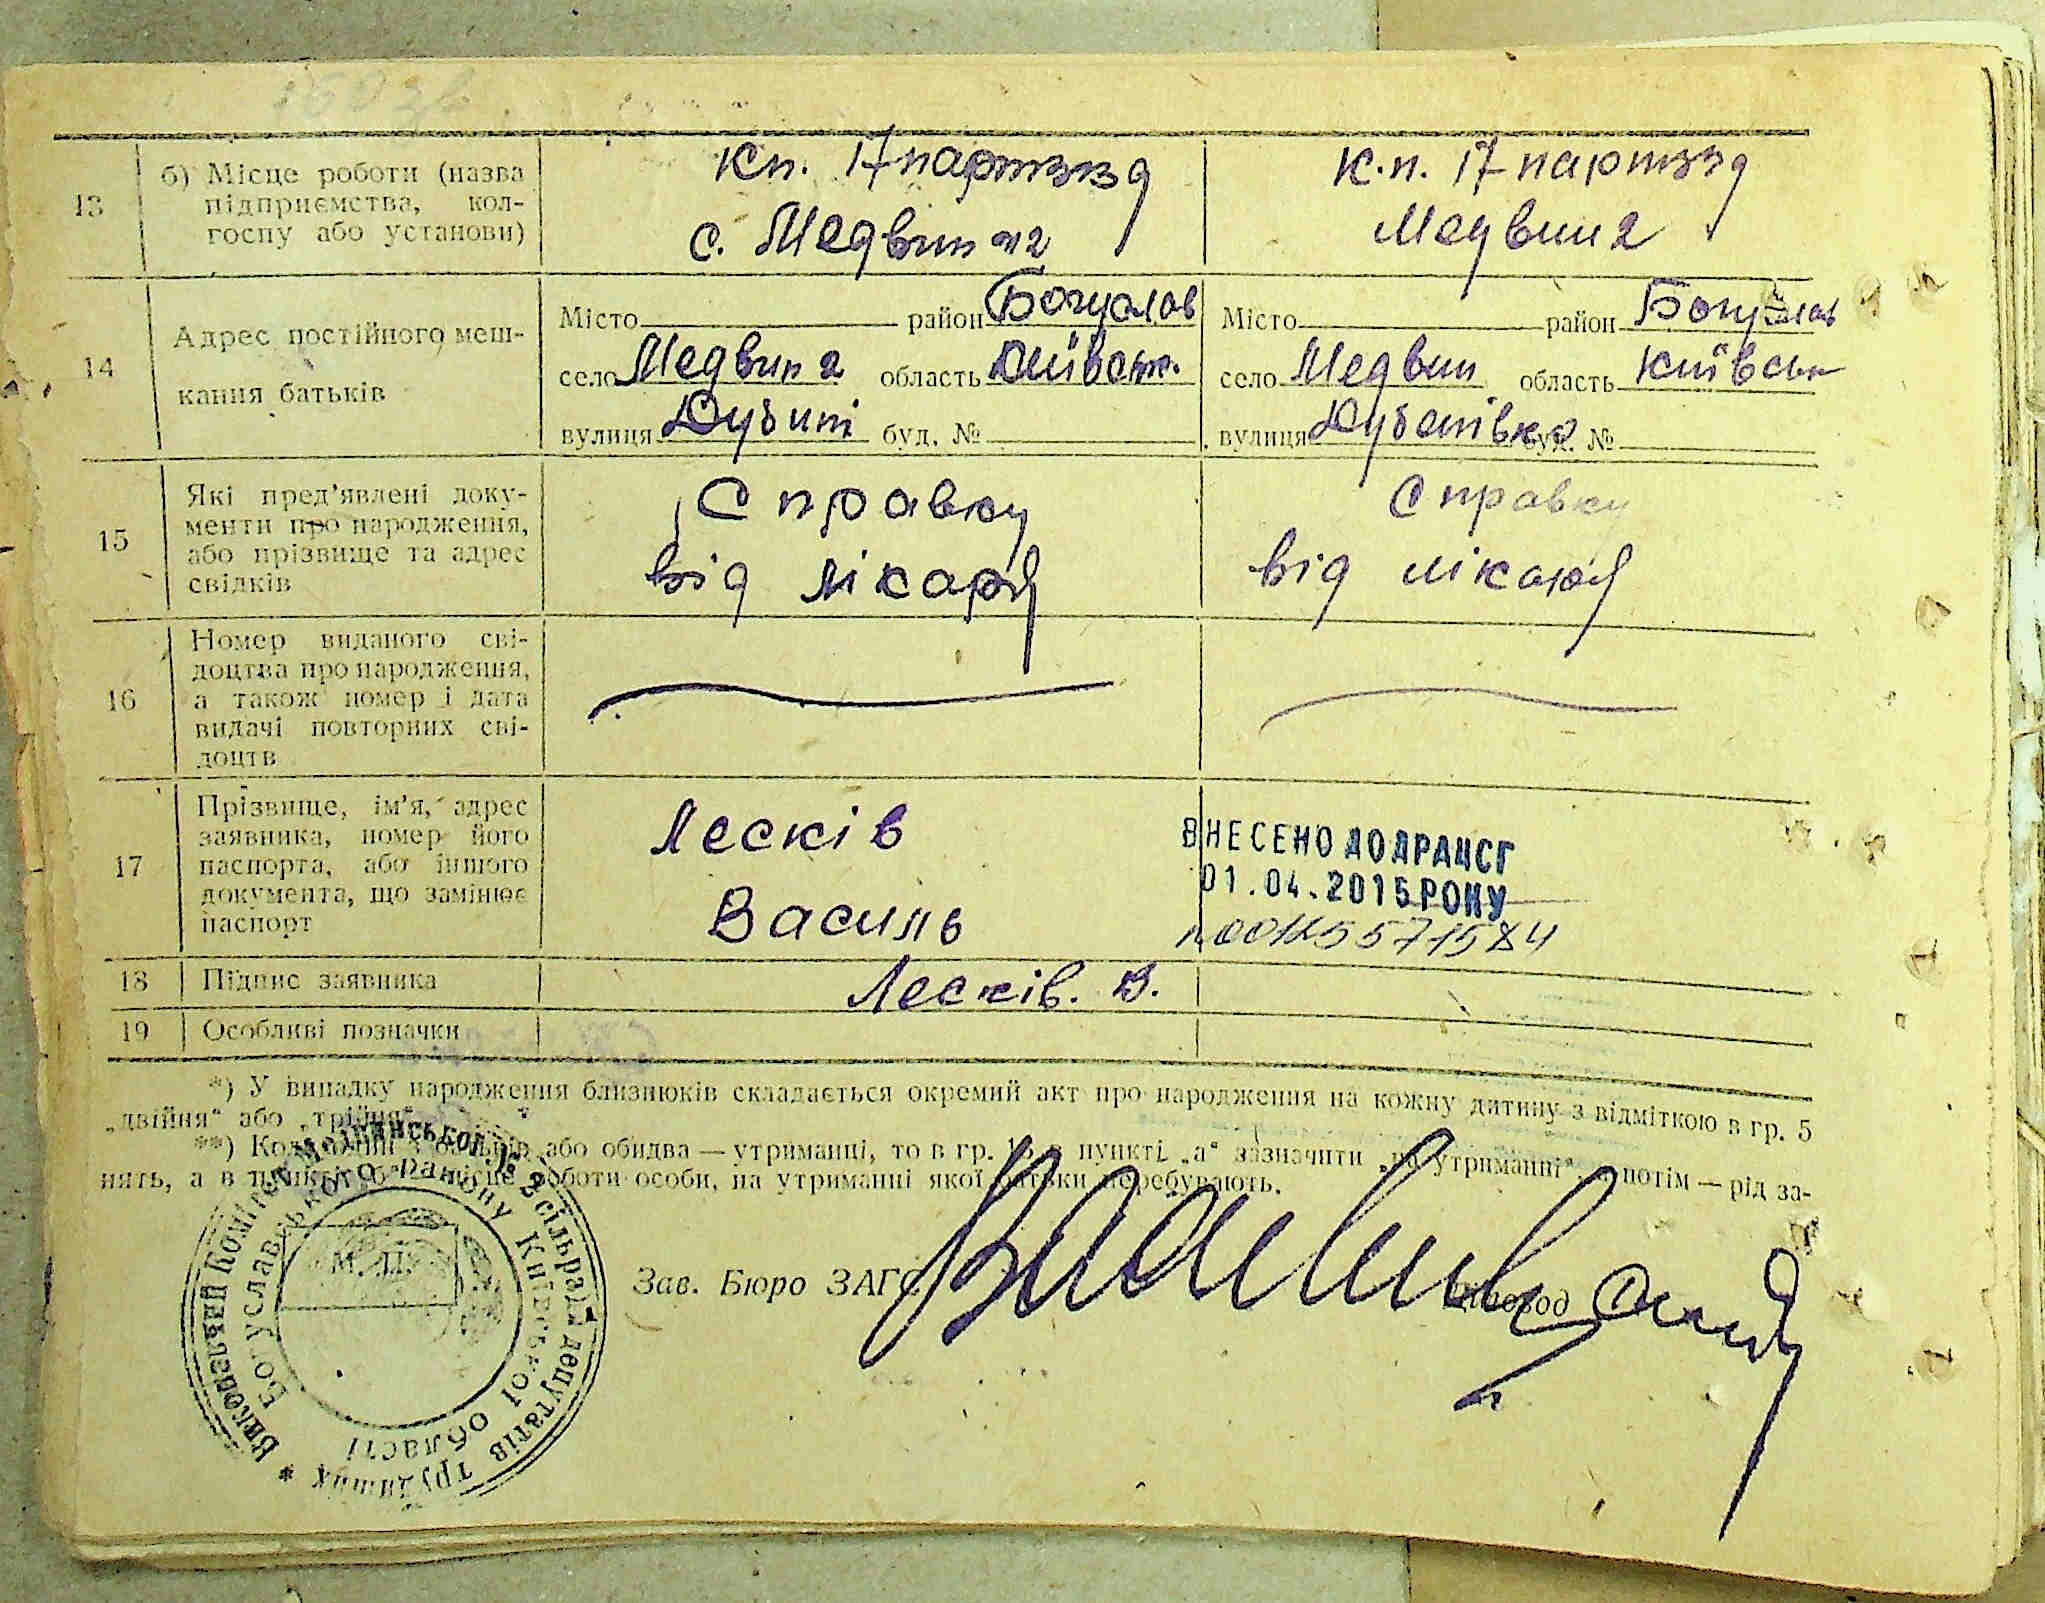 13
б) Місце роботи (назва
підприємства, кол-
госпу або установи)
кп. 17 партззд
с. Медвин 2
к.п. 17 партззд
Медвин 2
14
Адрес постійного меш-
кання батьків
Місто район Богуслав
село Медвин 2 область Київськ.
вулиця буд. №
Місто район Богуслав
село Медвин область Київськ
вулиця Дубенівка буд. №
15
Які пред'явлені доку-
менти про народження,
або прізвище та адрес
свідків
Справку
від лікаря
Справку
від лікаря
16
Номер виданого сві-
доцтва про народження,
а також номер і дата
видачі повторних сві-
доцтв
17
Прізвище, ім'я, адрес
заявника, номер його
паспорта, або іншого
документа, що замінює
паспорт
Лесків
Василь
ВНЕСЕНО ДО ДРАЦСГ
01.04.2015 РОКУ
18 Підпис заявника
Лесків. В.
19 Особливі позначки
*) У випадку народження близнюків складається окремий акт про народження на кожну дитину з відміткою в гр. 5
„двійня" або „трійня".
**) Коли один з батьків або обидва — утриманці, то в гр. 13 в пункті „а" зазначити „на утриманні", а потім — рід за-
нять, а в пункті „б" — місце роботи особи, на утриманні якої батьки перебувають.
М. П.
Зав. Бюро ЗАГС
Діловод
Виконавчий Комітет Медвинської № 2 сільради депутатів трудящих *
Богуславського району Київської області